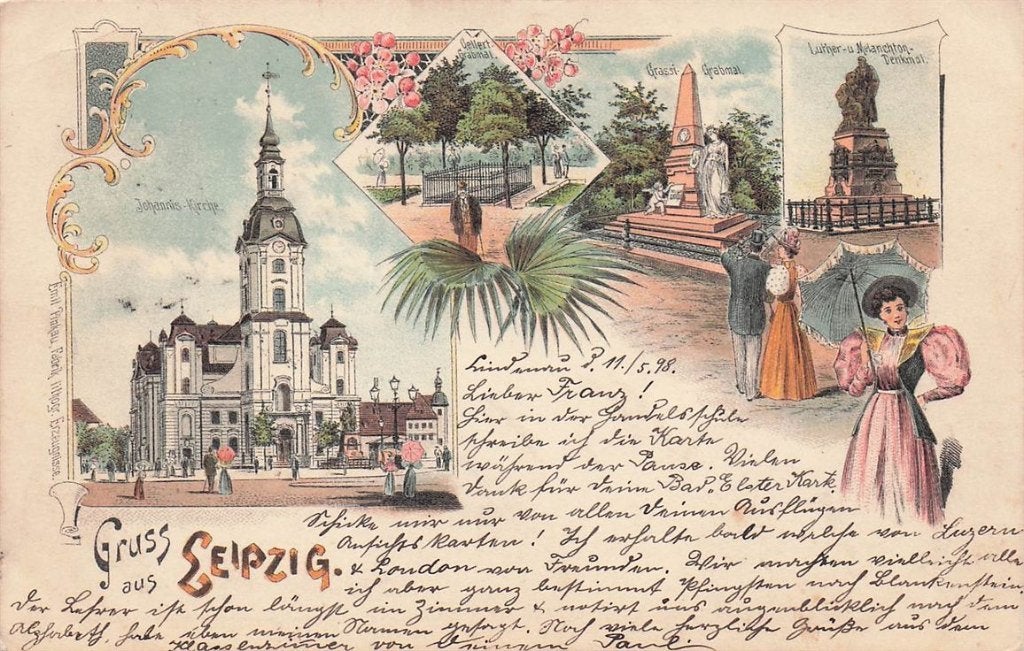 Gellert-
Grabmal.
Grassi-Grabmal.
Luther- u. Melanchton-
Denkmal.
Johannis-Kirche
Emil Pinkau, Fabrik lithogr. Erzeugnisse.
Gruss
aus
Leipzig.
Lindenau d. 11./5.98.
Lieber Franz!
Hier in der Handelsschule
schreibe ich die Karte
während der Pause. Vielen
Dank für deine Bad. Elster Kart.
Schicke mir nur von allen deinen Ausflügen
Ansichtskarten! Ich erhalte bald welche von Luzern
& London von Freunden. Wir machen vielleicht alle
ich aber ganz bestimmt Pfingsten nach Blankenstein
Der Lehrer ist schon längst im Zimmer & notirt uns augenblicklich nach dem
Alphabeth, habe eben meinen Namen gesagt. Noch viele herzliche Grüße aus dem
Klassenzimmer von Deinem Paul